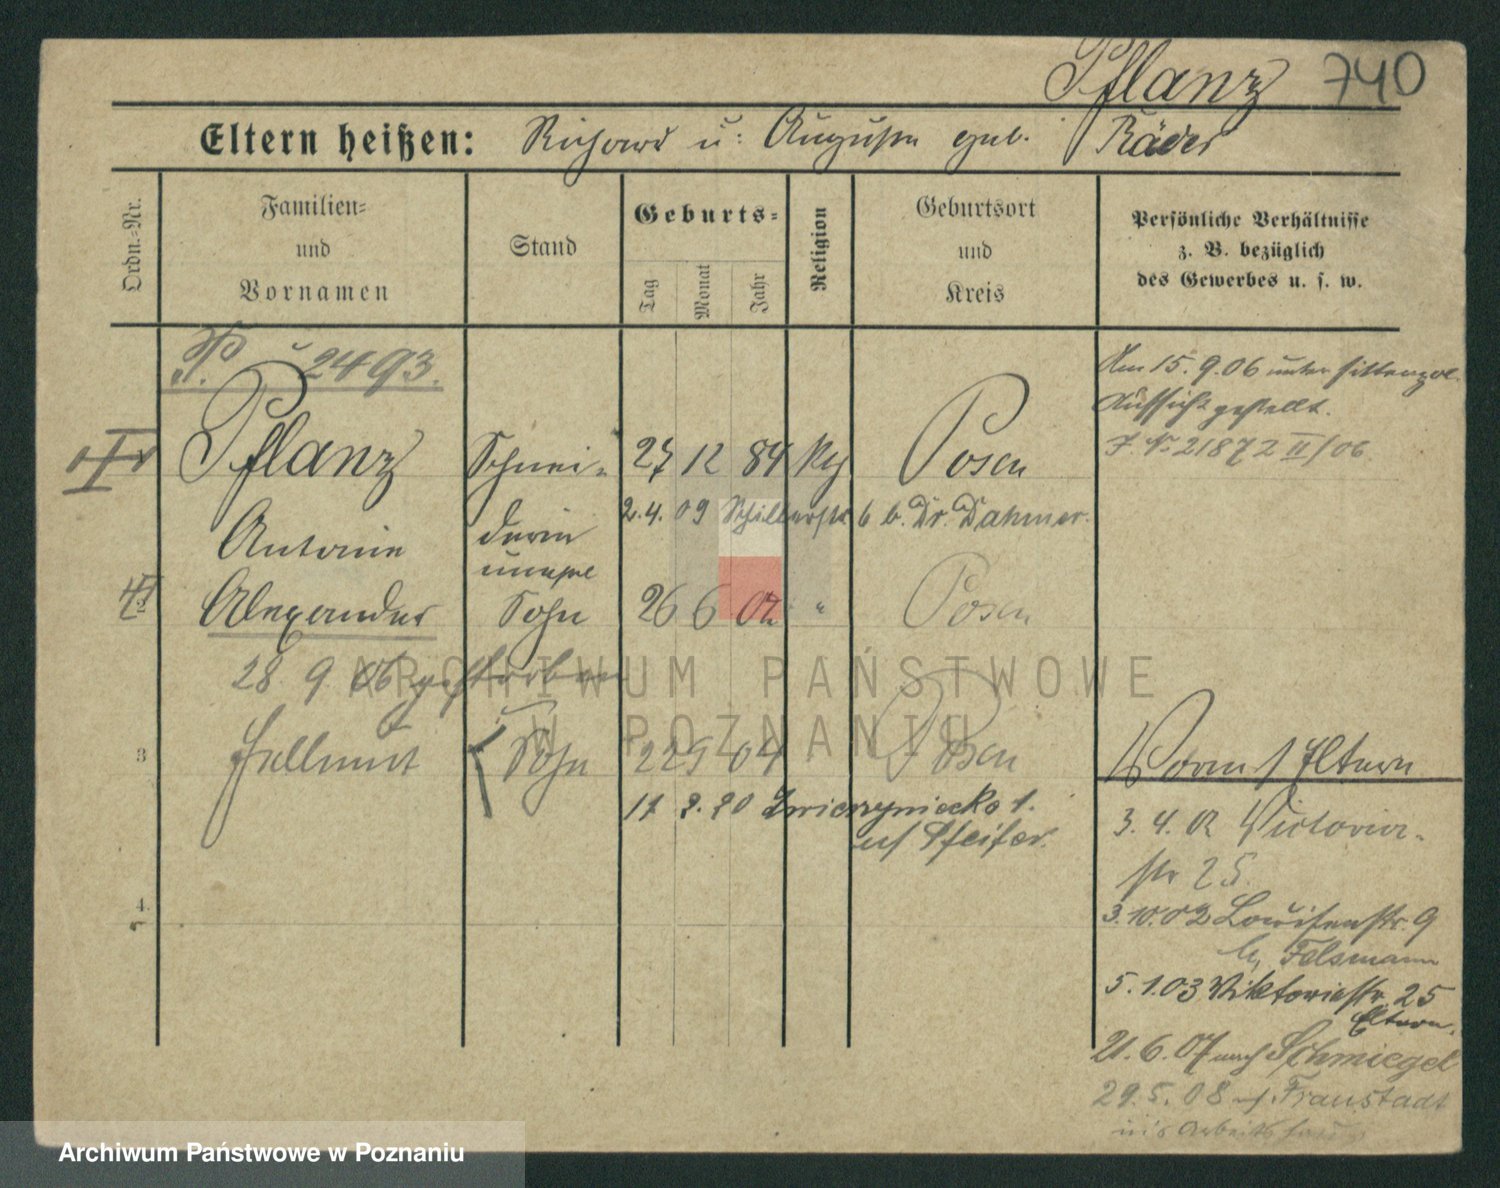 Pflanz 740
Eltern heißen: Richard u: Auguste geb. Räder
Ordn.-Nr.
Familien-
und
Vornamen
Stand
Geburts-
Tag
Monat
Jahr
Religion
Geburtsort
und
Kreis
Persönliche Verhältnisse
z. B. bezüglich
des Gewerbes u. s. w.
P. 2493.
Am 15.9.06 unter sittenpol.
Aufsicht gestellt.
J. № 21872 II/06.
Pflanz Schnei- 27 12 84 Posen
2.4.09 Schillerstr 6 b. Dr. Dahmer.
Antonie derin
unehel
2 Alexander Sohn 26 6 02 " Posen
28. 9. 06 gestorben
3 Hellmut Sohn 22 9 04 Posen
17 2. 20 Zwierzyniecka 1.
Pfeifer.
Eltern
3. 4. 02 Victoria-
str 25.
3.10.02 Louisenstr. 9
b. Felsmann
5.1.03 Viktoriastr. 25
Eltern.
21.6.07 nach Schmiegel
29.5.08 Fraustadt
ins Arbeitshaus
4.
ARCHIWUM PAŃSTWOWE
W POZNANIU
Archiwum Państwowe w Poznaniu